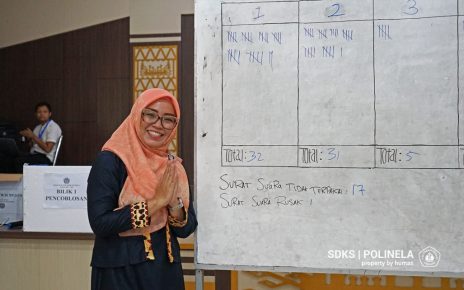 1 2 3
Total: 32 Total: 31 Total: 5
SURAT SUARA TIDAK TERPAKAI : 17
SURAT SUARA RUSAK :
BILIK 1
PENCOBLOSAN
SDKS | POLINELA
property by humas